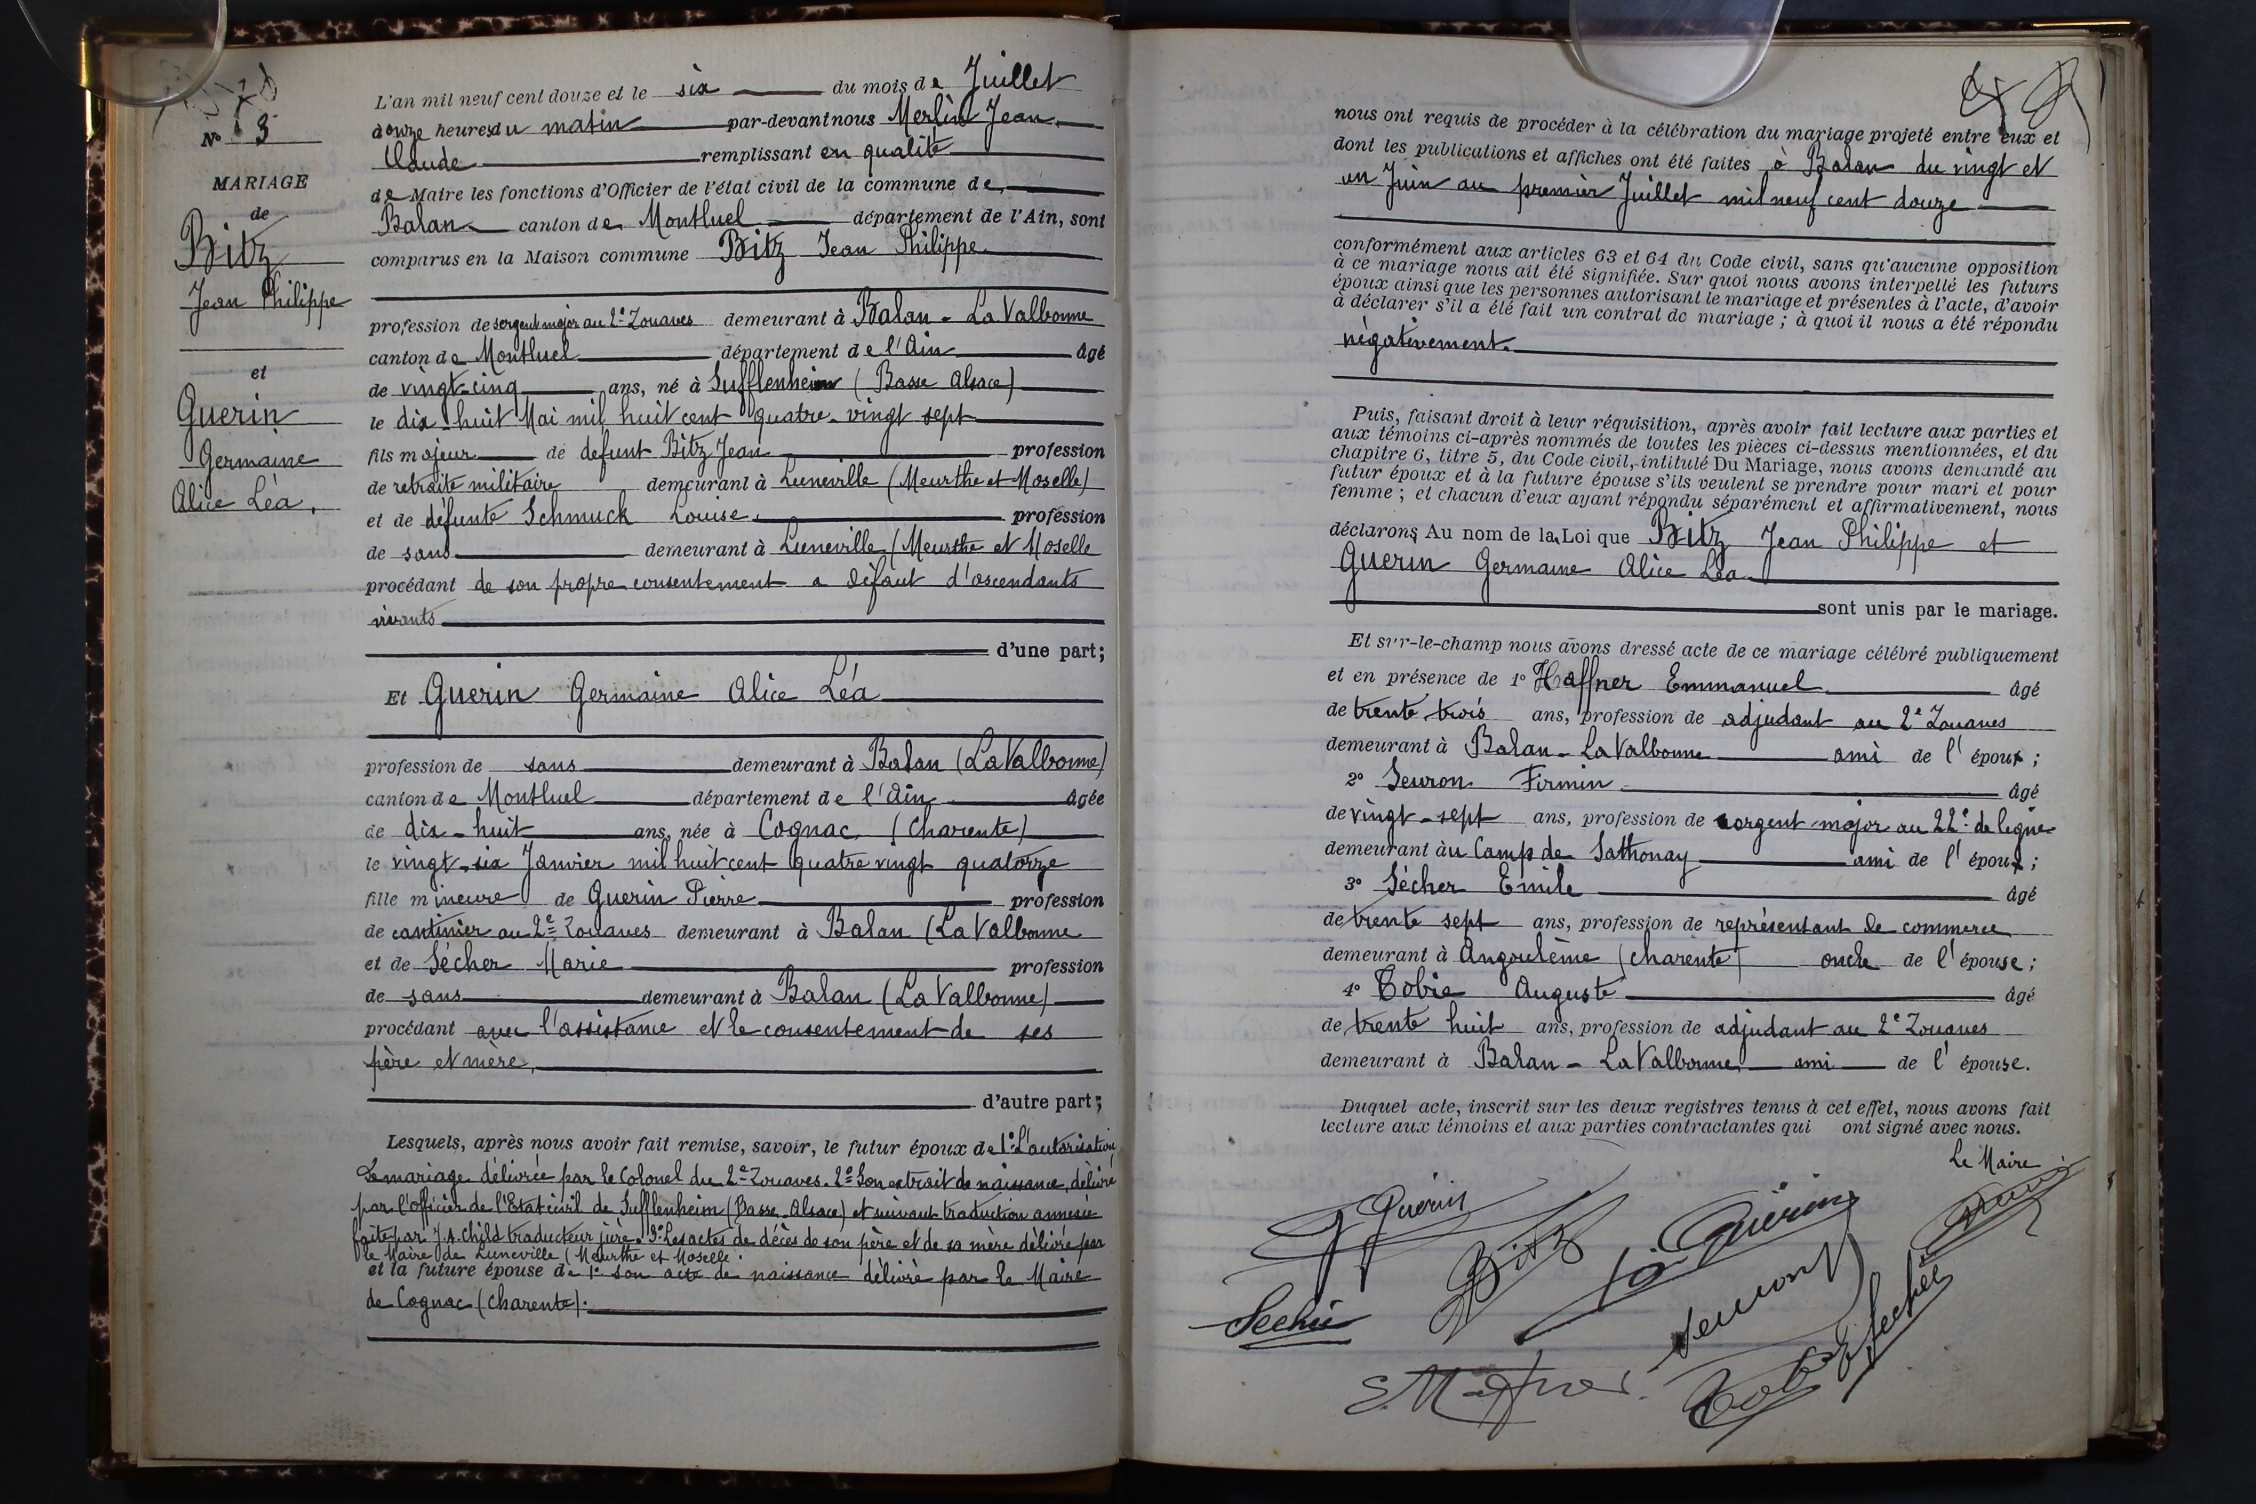 N° 3
MARIAGE
de
Bitz
Jean Philippe
et
Guerin
Germaine
Alice Léa.
L'an mil neuf cent douze et le six du mois de Juillet
à onze heures du matin par-devant nous Merlin Jean
Claude remplissant en qualité
de Maire les fonctions d'Officier de l'état civil de la commune de
Balan canton de Montluel département de l'Ain, sont
comparus en la Maison commune Bitz Jean Philippe
profession de sergent major au 2e Zouaves demeurant à Balan - La Valbonne
canton de Montluel département de l'Ain âgé
de vingt-cinq ans, né à Sufflenheim (Basse Alsace)
le dix-huit Mai mil huit cent quatre-vingt sept
fils majeur de défunt Bitz Jean profession
de retraité militaire demeurant à Luneville (Meurthe et Moselle)
et de défunte Schmuck Louise profession
de sans demeurant à Luneville (Meurthe et Moselle
procédant de son propre consentement a défaut d'ascendants
vivants
d'une part;
Et Guerin Germaine Alice Léa
profession de sans demeurant à Balan (La Valbonne)
canton de Montluel département de l'Ain âgée
de dix-huit ans, née à Cognac (Charente)
le vingt-six Janvier mil huit cent quatre vingt quatorze
fille mineure de Guerin Pierre profession
de cantinier au 2e Zouaves demeurant à Balan (La Valbonne
et de Sécher Marie profession
de sans demeurant à Balan (La Valbonne)
procédant avec l'assistance et le consentement de ses
père et mère,
d'autre part;
Lesquels, après nous avoir fait remise, savoir, le futur époux de 1° L'autorisation
de mariage délivrée par le Colonel du 2e Zouaves. 2° Son extrait de naissance, délivré
par l'officier de l'Etat civil de Sufflenheim (Basse-Alsace) et suivant traduction annexée
faite par J.A. Child traducteur juré. 3° Les actes de décès de son père et de sa mère délivré par
le Maire de Luneville (Meurthe et Moselle.
et la future épouse de 1° son acte de naissance délivré par le Maire
de Cognac (Charente).
nous ont requis de procéder à la célébration du mariage projeté entre eux et
dont les publications et affiches ont été faites à Balan du vingt et
un Juin au premier Juillet mil neuf cent douze
conformément aux articles 63 et 64 du Code civil, sans qu'aucune opposition
à ce mariage nous ait été signifiée. Sur quoi nous avons interpellé les futurs
époux ainsi que les personnes autorisant le mariage et présentes à l'acte, d'avoir
à déclarer s'il a été fait un contrat de mariage; à quoi il nous a été répondu
négativement.
Puis, faisant droit à leur réquisition, après avoir fait lecture aux parties et
aux témoins ci-après nommés de toutes les pièces ci-dessus mentionnées, et du
chapitre 6, titre 5, du Code civil, intitulé Du Mariage, nous avons demandé au
futur époux et à la future épouse s'ils veulent se prendre pour mari et pour
femme; et chacun d'eux ayant répondu séparément et affirmativement, nous
déclarons Au nom de la Loi que Bitz Jean Philippe et
Guerin Germaine Alice Léa
sont unis par le mariage.
Et sur-le-champ nous avons dressé acte de ce mariage célébré publiquement
et en présence de 1° Haffner Emmanuel âgé
de trente trois ans, profession de adjudant au 2e Zouaves
demeurant à Balan - La Valbonne ami de l'époux;
2° Seuron Firmin âgé
de vingt-sept ans, profession de sergent major au 22e de ligne
demeurant au Camp de Sathonay ami de l'époux;
3° Sécher Emile âgé
de trente sept ans, profession de représentant de commerce
demeurant à Angoulème (Charente) oncle de l'épouse;
4° Tobie Auguste âgé
de trente huit ans, profession de adjudant au 2e Zouaves
demeurant à Balan - La Valbonne ami de l'épouse.
Duquel acte, inscrit sur les deux registres tenus à cet effet, nous avons fait
lecture aux témoins et aux parties contractantes qui ont signé avec nous.
Le Maire
G Guérin
Bitz
Guérin
Seuron